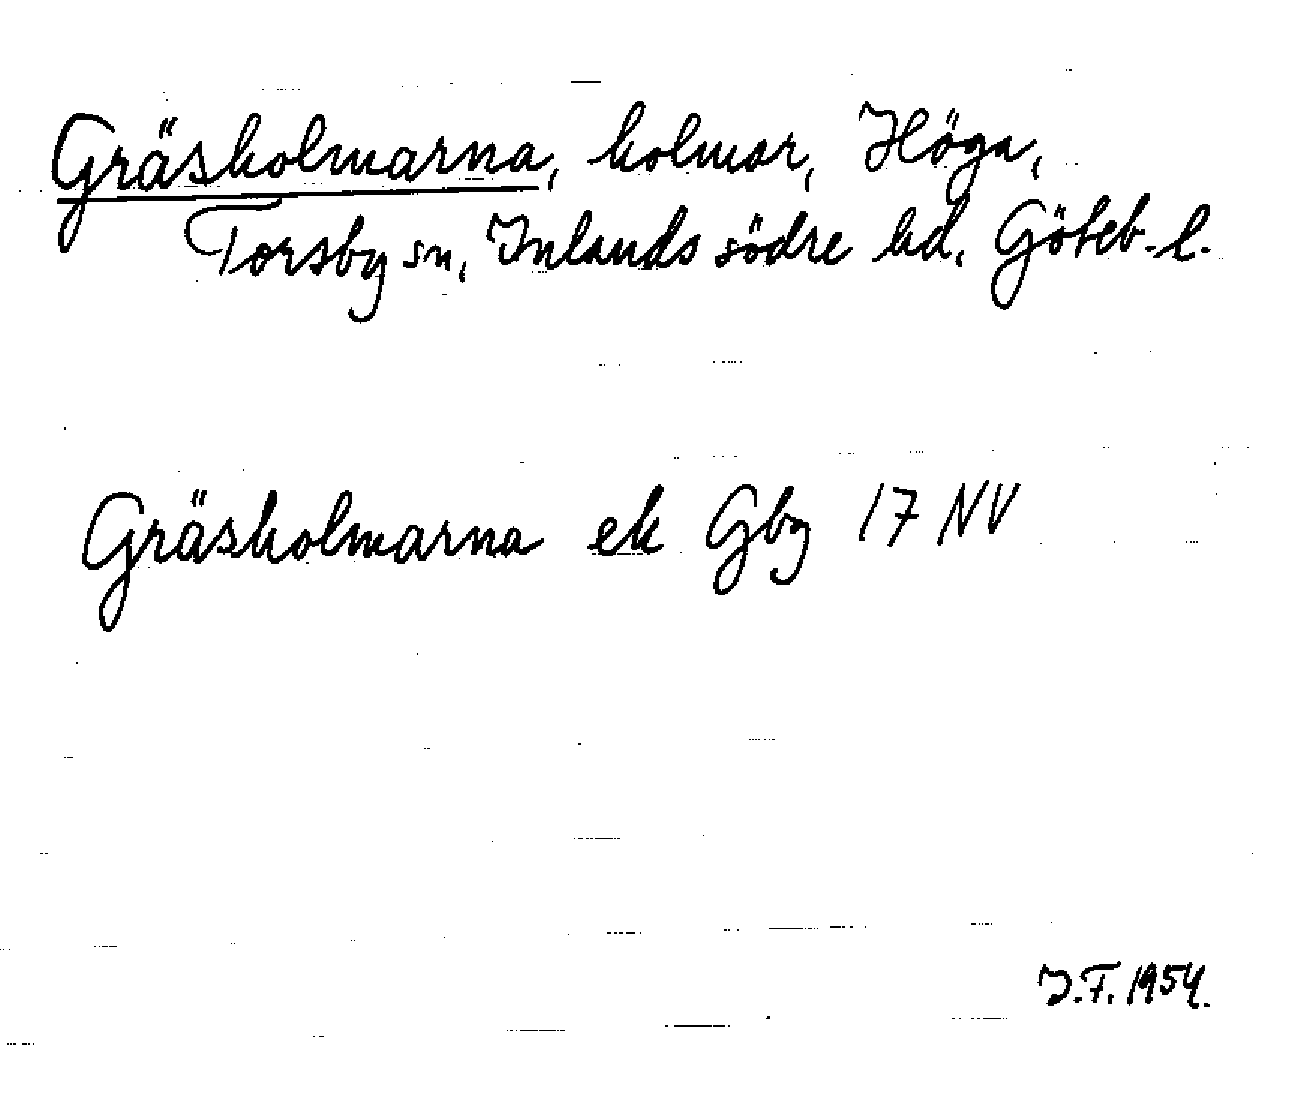 Gräsholmarna, holmar, Höga,
Torsby sn, Inlands södre hd, Göteb. l.
Gräsholmarna ek Gbg 17 NV
J.F. 1954.